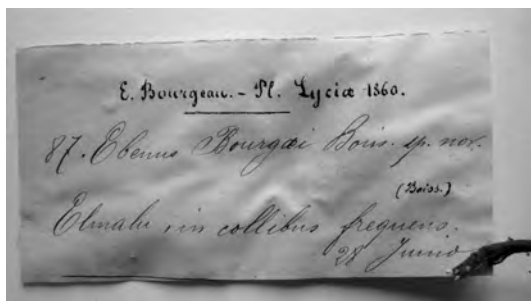 E. Bourgeau. - Pl. Lyciæ 1860.
87. Ebenus Bourgæi Boiss. sp. nov.
(Boiss.)
Elmalu, in collibus frequens.
28 Junio